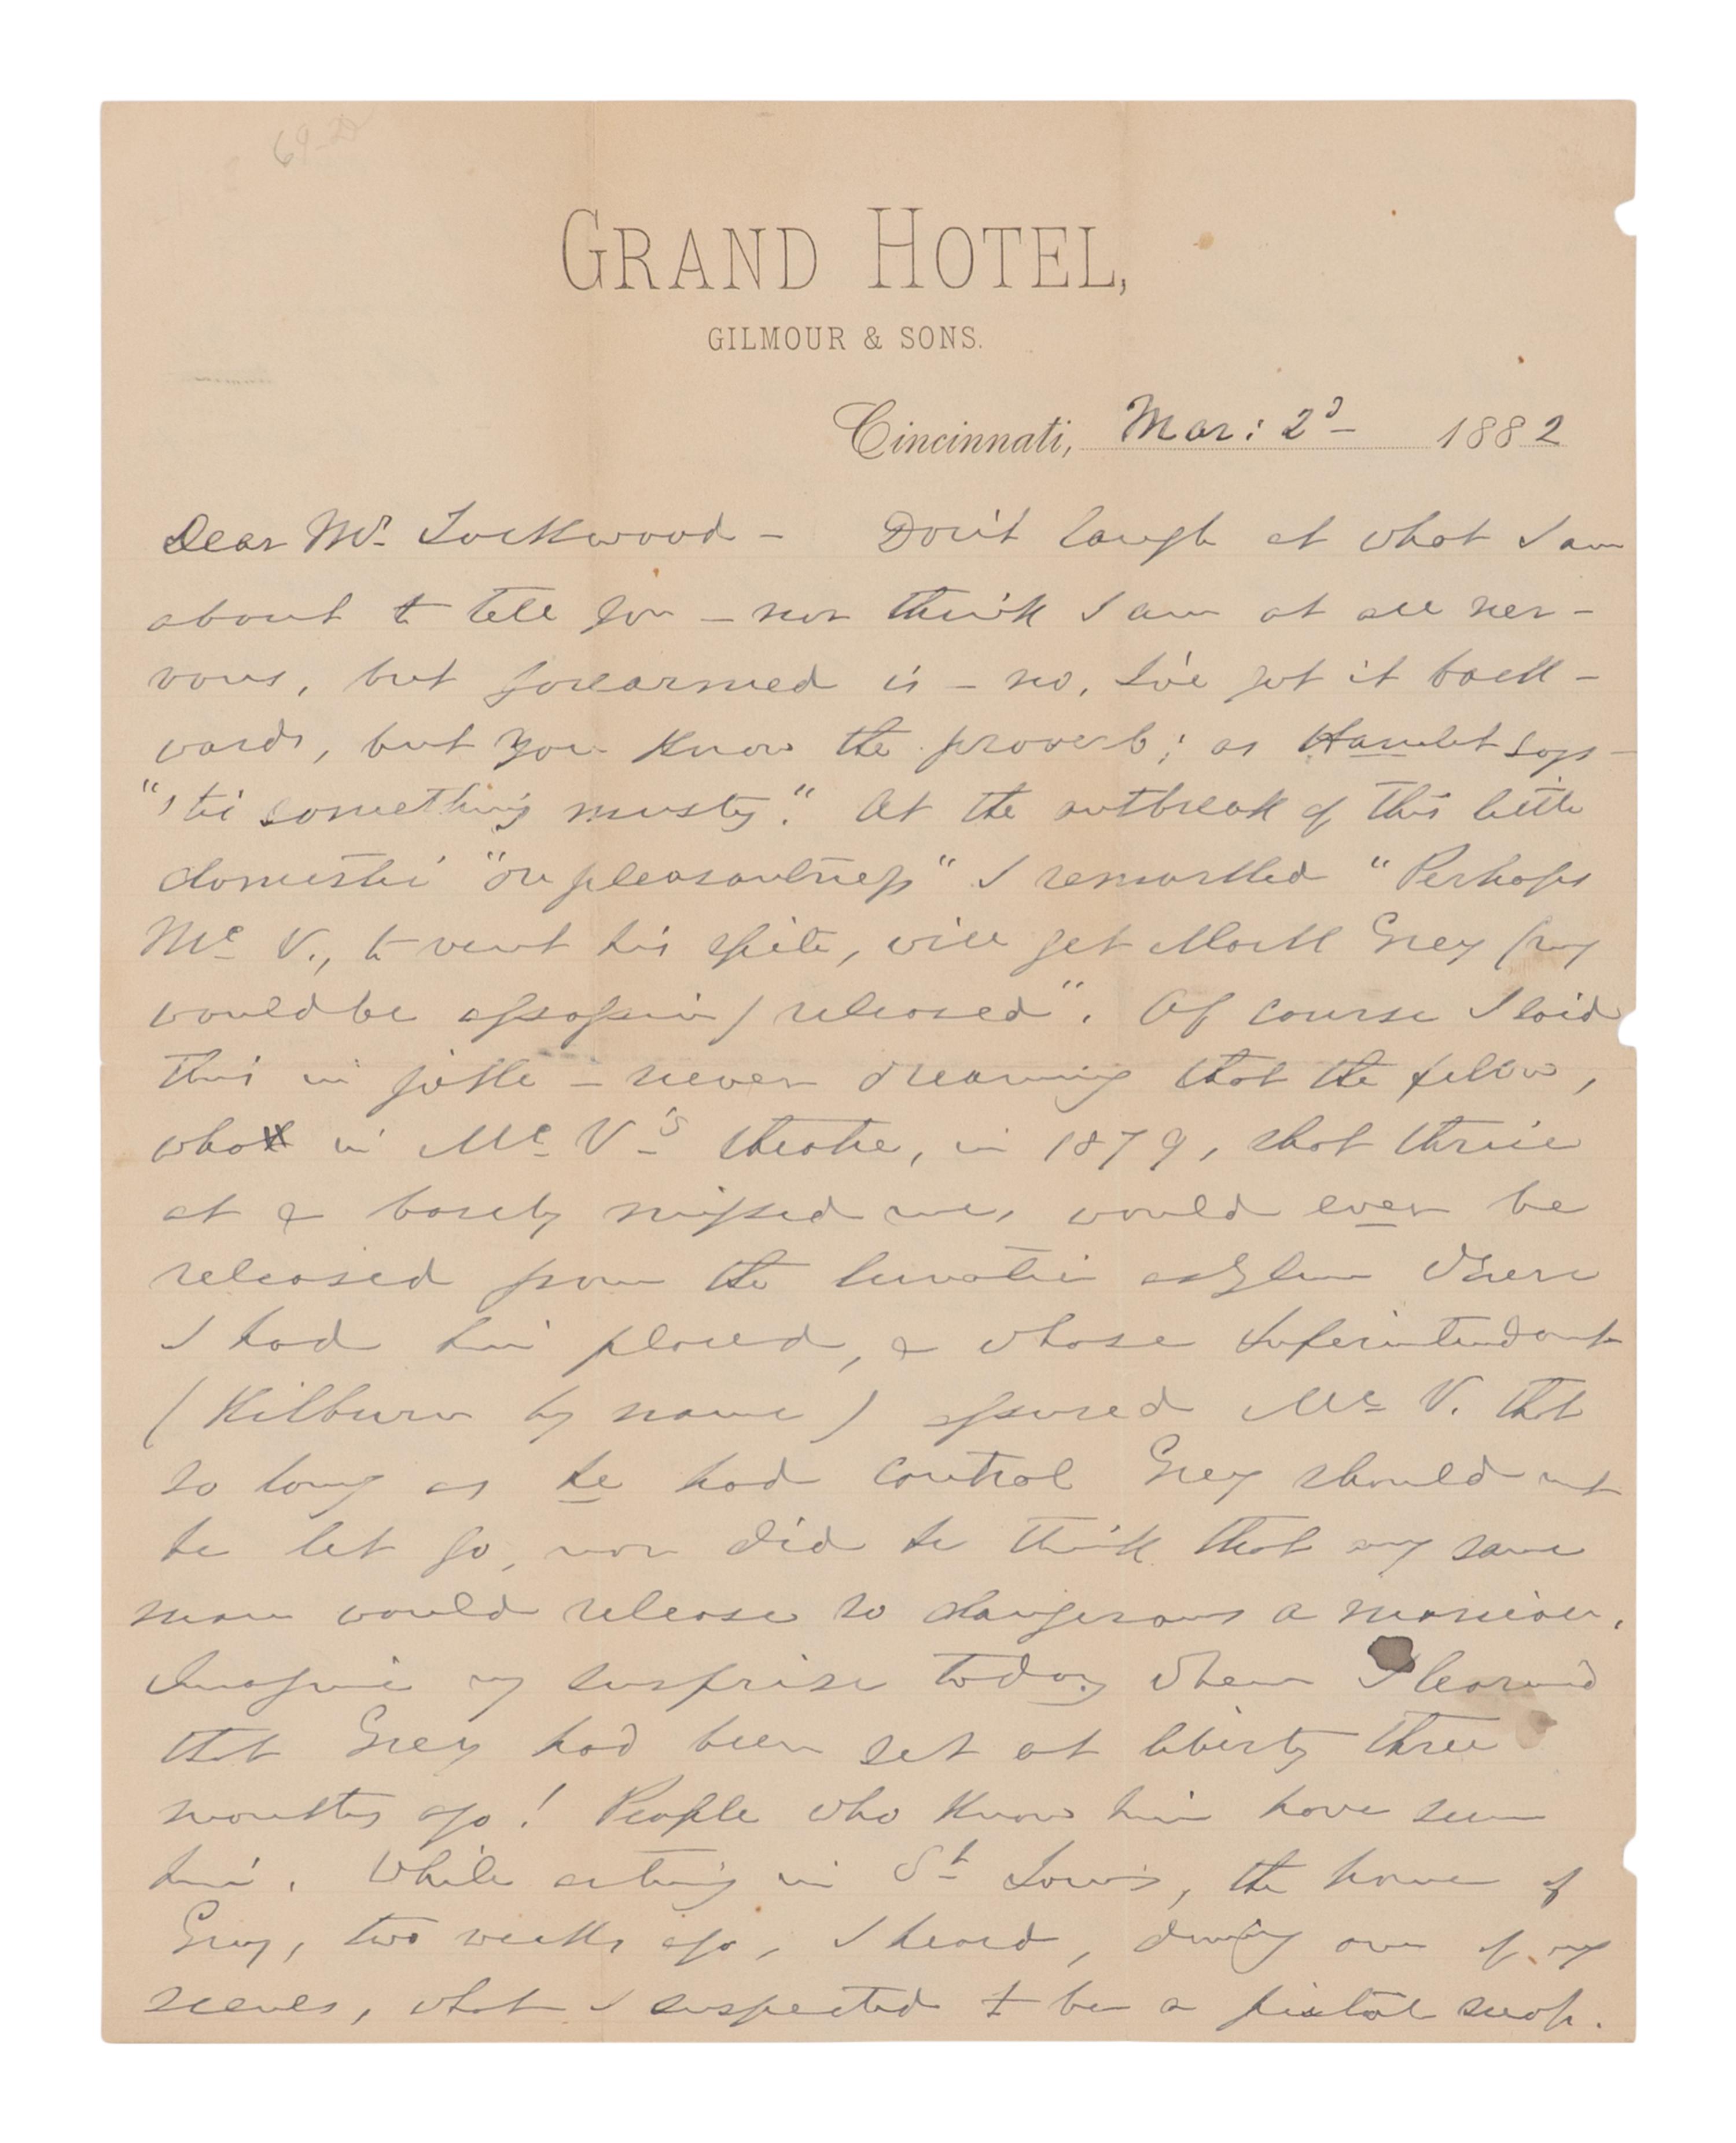 69-
GRAND HOTEL,
GILMOUR & SONS.
Cincinnati, Mar: 2d 1882
Dear Mr. Lockwood - Don't laugh at what I am
about to tell you - nor think I am at all ner-
vous, but forearmed is - no, I've got it back-
wards, but you know the proverb; as Hamlet says -
"'tis something musty." At the outbreak of this little
domestic "onpleasantness" I remarked "Perhaps
Mc V., to vent his spite, will get Mark Grey (my
wouldbe assassin) released". Of course I said
this in joke - never dreaming that the fellow,
who in Mc V's theatre, in 1879, shot thrice
at & barely missed me, would ever be
released from the lunatic asylum where
I had him placed, & whose Superintendant
(Kilburn by name) assured Mc V. that
so long as he had control Grey should not
be let go, nor did he think that any sane
man would release so dangerous a maniac.
Imagine my surprise today when I learn'd
that Grey had been set at liberty three
months ago! People who know him have seen
him. While acting in St Louis, the home of
Grey, two weeks ago, I heard, during one of my
scenes, what I suspected to be a pistol snap.